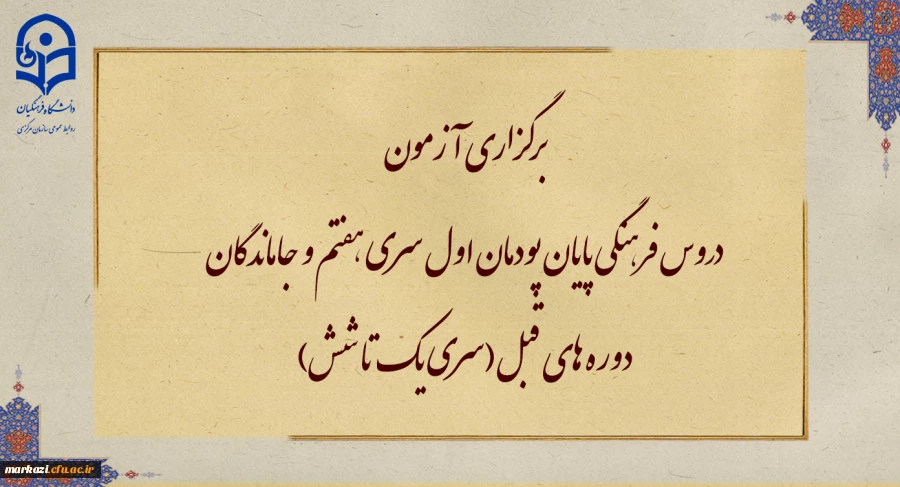 دانشگاه فرهنگیان
روابط عمومی سازمان مرکزی
برگزاری آزمون
دروس فرهنگی پایان پودمان اول سری هفتم و جاماندگان
دوره های قبل (سری یک تا شش)
markazi.cfu.ac.ir